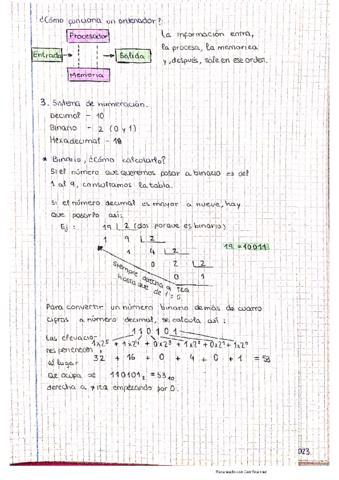 ¿Cómo funciona un ordenador?
Procesador
Entrada
Salida
Memoria
La información entra,
la procesa, la memoriza
y, después, sale en ese orden.
3. Sistema de numeración.
Decimal - 10
Binario - 2 (0 y 1)
Hexadecimal - 16
* Binario, ¿Cómo calcularlo?
Si el número que queremos pasar a binario es del
1 al 9, consultamos la tabla.
Si el número decimal es mayor a nueve, hay
que pasarlo así:
Ej: 19 | 2 (dos porque es binario)
1 9 | 2
1 4 | 2
0 2 | 2
0 1
19 = 10011
Siempre
hasta que de 1 ÷ 0.
Para convertir un número binario de más de cuatro
cifras a número decimal, se calcula así:
110101
Las
1x2⁵ + 1x2⁴ + 0x2³ + 1x2² + 0x2¹ + 1x2⁰
al lugar
32 + 16 + 0 + 4 + 0 + 1 = 53
que ocupa de 110101₂ = 53₁₀
derecha a izq empezando por 0.
023
Escaneado con CamScanner